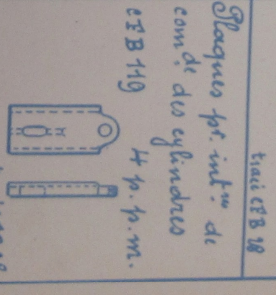 tracé CFB 28
Plaques pr. intres de
comde des cylindres
CFB 119 4 p.p.m.